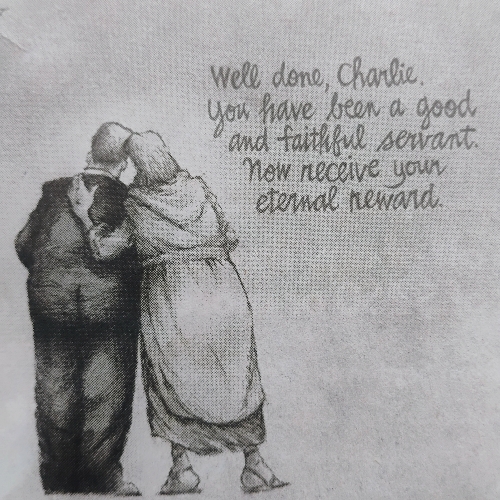 Well done, Charlie.
You have been a good
and faithful servant.
Now receive your
eternal reward.